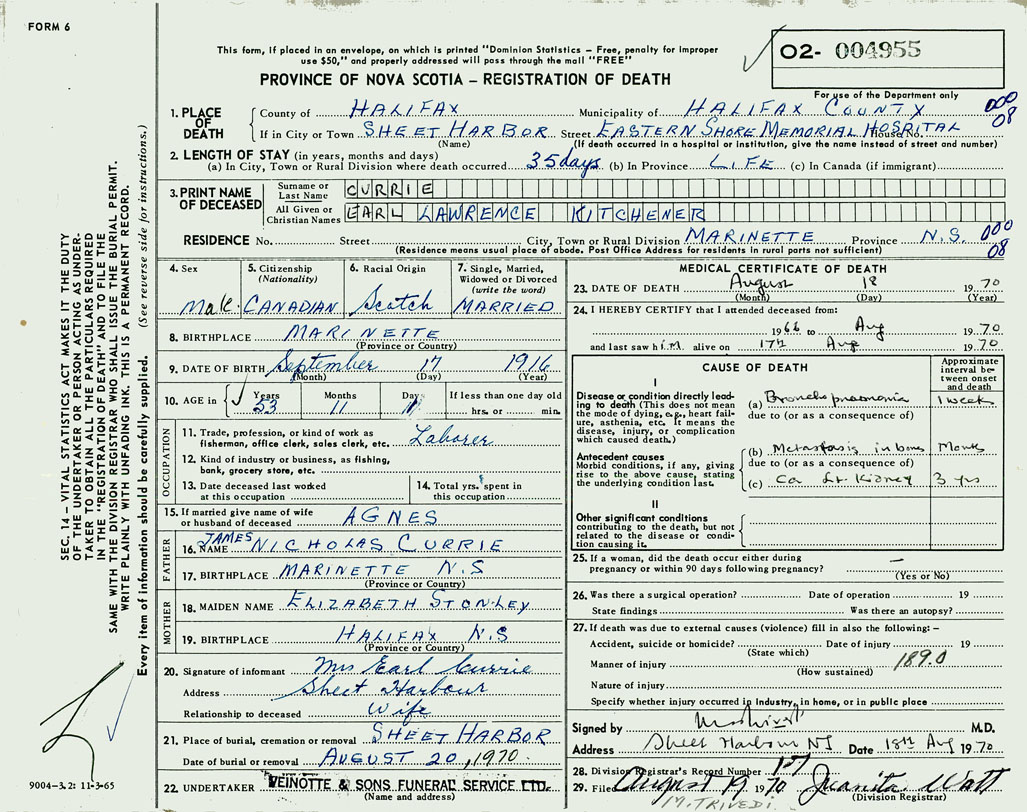 FORM 6
This form, if placed in an envelope, on which is printed "Dominion Statistics – Free, penalty for improper
use $50," and properly addressed will pass through the mail "FREE"
PROVINCE OF NOVA SCOTIA – REGISTRATION OF DEATH
02- 004955
For use of the Department only
1. PLACE OF DEATH
County of HALIFAX Municipality of HALIFAX COUNTY 000
If in City or Town SHEET HARBOR Street EASTERN SHORE MEMORIAL HOSPITAL House No. 08
(Name) (If death occurred in a hospital or institution, give the name instead of street and number)
2. LENGTH OF STAY (in years, months and days)
(a) In City, Town or Rural Division where death occurred 35 days (b) In Province LIFE (c) In Canada (if immigrant)
3. PRINT NAME OF DECEASED
Surname or Last Name CURRIE
All Given or Christian Names EARL LAWRENCE KITCHENER
RESIDENCE No. Street City, Town or Rural Division MARINETTE Province N.S. 000
(Residence means usual place of abode. Post Office Address for residents in rural parts not sufficient) 08
SEC. 14 – VITAL STATISTICS ACT MAKES IT THE DUTY
OF THE UNDERTAKER OR PERSON ACTING AS UNDER-
TAKER TO OBTAIN ALL THE PARTICULARS REQUIRED
IN THE "REGISTRATION OF DEATH" AND TO FILE THE
SAME WITH THE DIVISION REGISTRAR WHO SHALL ISSUE THE BURIAL PERMIT.
WRITE PLAINLY WITH UNFADING INK. THIS IS A PERMANENT RECORD.
Every item of information should be carefully supplied. (See reverse side for instructions.)
4. Sex Male
5. Citizenship (Nationality) CANADIAN
6. Racial Origin Scotch
7. Single, Married, Widowed or Divorced (write the word) MARRIED
8. BIRTHPLACE MARINETTE
(Province or Country)
9. DATE OF BIRTH September 17 1916
(Month) (Day) (Year)
10. AGE in Years Months Days If less than one day old
53 11 1 hrs. or min.
OCCUPATION
11. Trade, profession, or kind of work as
fisherman, office clerk, sales clerk, etc. Laborer
12. Kind of industry or business, as fishing,
bank, grocery store, etc.
13. Date deceased last worked
at this occupation
14. Total yrs. spent in
this occupation
15. If married give name of wife
or husband of deceased AGNES
FATHER
16. NAME JAMES NICHOLAS CURRIE
17. BIRTHPLACE MARINETTE N.S
(Province or Country)
MOTHER
18. MAIDEN NAME ELIZABETH STONLEY
19. BIRTHPLACE HALIFAX N.S
(Province or Country)
20. Signature of informant Mrs Earl Currie
Address Sheet Harbour
Relationship to deceased Wife
21. Place of burial, cremation or removal SHEET HARBOR
Date of burial or removal AUGUST 20, 1970.
22. UNDERTAKER VEINOTTE & SONS FUNERAL SERVICE LTD.
(Name and address)
9004–3.2: 11-3-65
MEDICAL CERTIFICATE OF DEATH
23. DATE OF DEATH August 18 1970
(Month) (Day) (Year)
24. I HEREBY CERTIFY that I attended deceased from:
1966 to Aug 1970
and last saw him alive on 17th Aug 1970
CAUSE OF DEATH
Approximate interval between onset and death
I
Disease or condition directly lead-
ing to death (This does not mean
the mode of dying, e.g., heart fail-
ure, asthenia, etc. It means the
disease, injury, or complication
which caused death.)
(a) Broncho pneumonia 1 week
due to (or as a consequence of)
Antecedent causes
Morbid conditions, if any, giving
rise to the above cause, stating
the underlying condition last.
(b) Metastasis in bones
due to (or as a consequence of)
(c) Ca Lt. Kidney 3 yrs
II
Other significant conditions
contributing to the death, but not
related to the disease or condi-
tion causing it.
25. If a woman, did the death occur either during
pregnancy or within 90 days following pregnancy? —
(Yes or No)
26. Was there a surgical operation? Date of operation 19
State findings Was there an autopsy?
27. If death was due to external causes (violence) fill in also the following: –
Accident, suicide or homicide? Date of injury 19
(State which)
Manner of injury 189.0
(How sustained)
Nature of injury
Specify whether injury occurred in industry, in home, or in public place
Signed by M.D.
Address Sheet Harbour NS Date 18th Aug 1970
28. Division Registrar's Record Number 1st
29. Filed August 19 1970 Juanita Watt
(Division Registrar)
M. TRIVEDI.